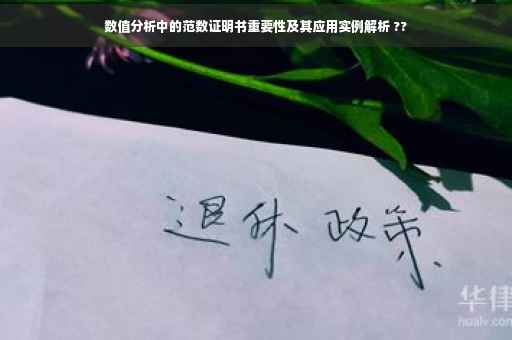 数值分析中的范数证明书重要性及其应用实例解析 ??
退休 政策
华律
hualv.com